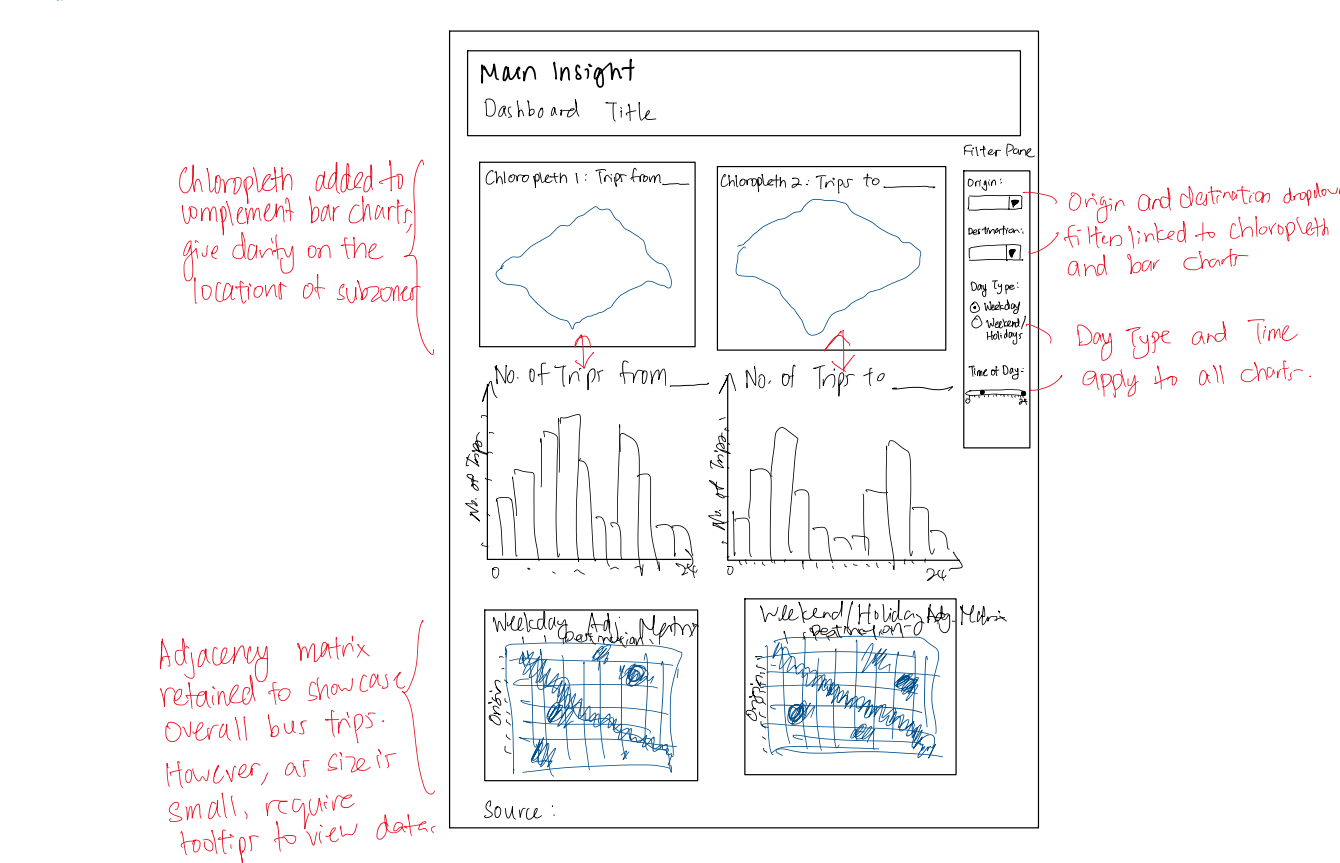 Main Insight
Dashboard Title
Filter Pane
Chloropleth added to
complement bar charts,
give clarity on the
locations of subzones
Chloropleth 1: Trips from___
Chloropleth 2: Trips to ______
Origin:
Destination:
Day Type:
Weekday
Weekend/
Holidays
Time of Day:
0
24
Origin and destination dropdown
filters linked to chloropleth
and bar charts
Day Type and Time
apply to all charts.
No. of Trips from ___
No. of Trips
0
24
No. of Trips to _____
No. of Trips
0
24
Adjacency matrix
retained to showcase
overall bus trips.
However, as size is
small, require
tooltips to view data.
Weekday Adj. Matrix
Destination
Origin
Weekend/Holiday Adj. Matrix
Destination
Origin
Source: